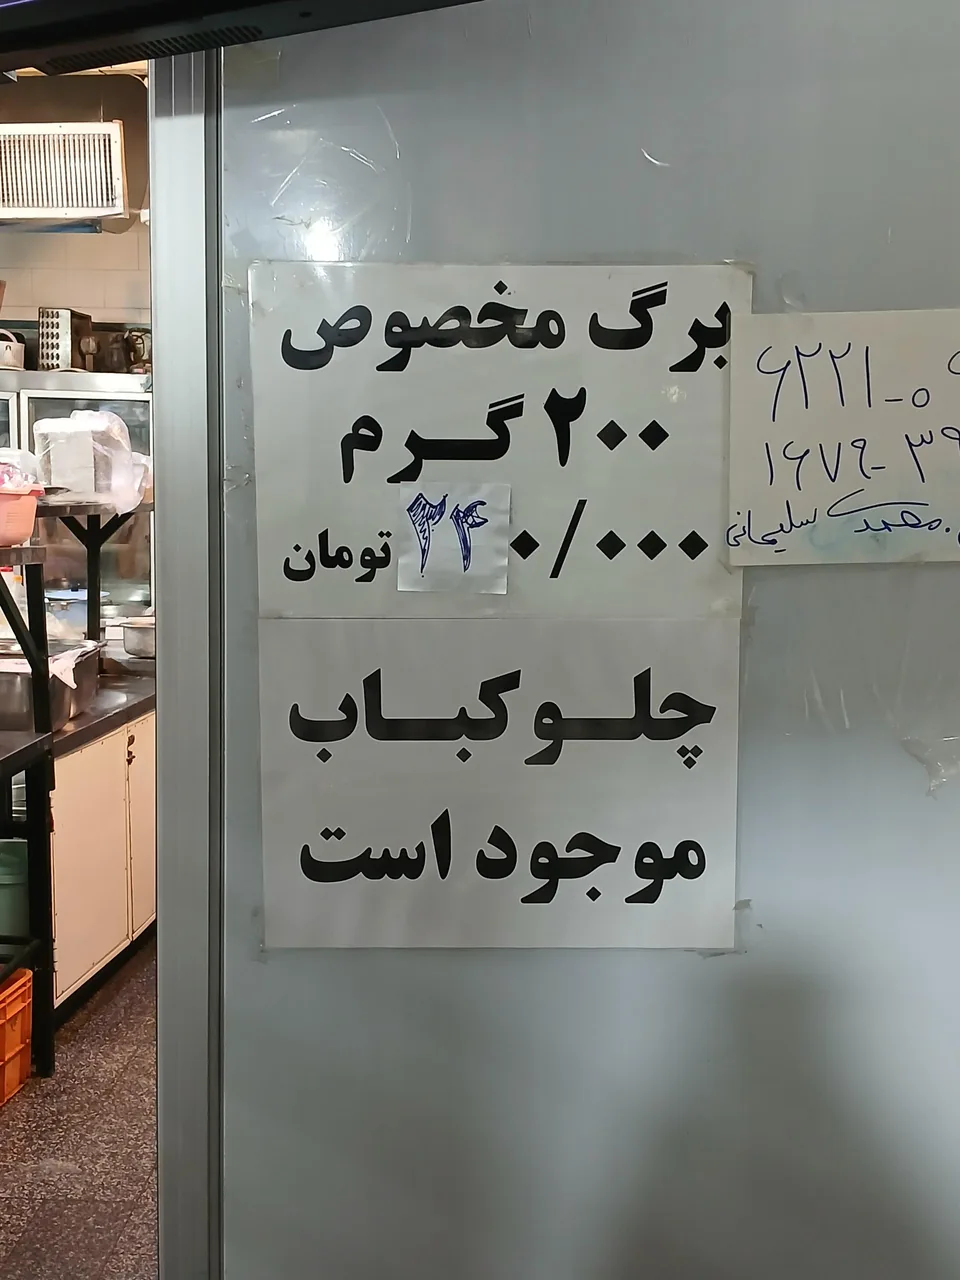 برگ مخصوص
۲۰۰ گرم
۳۴۰/۰۰۰ تومان
چلوکباب
موجود است
۶۲۲۱-۰۶
۱۶۷۹-۳۹
مهدی سلیمانی